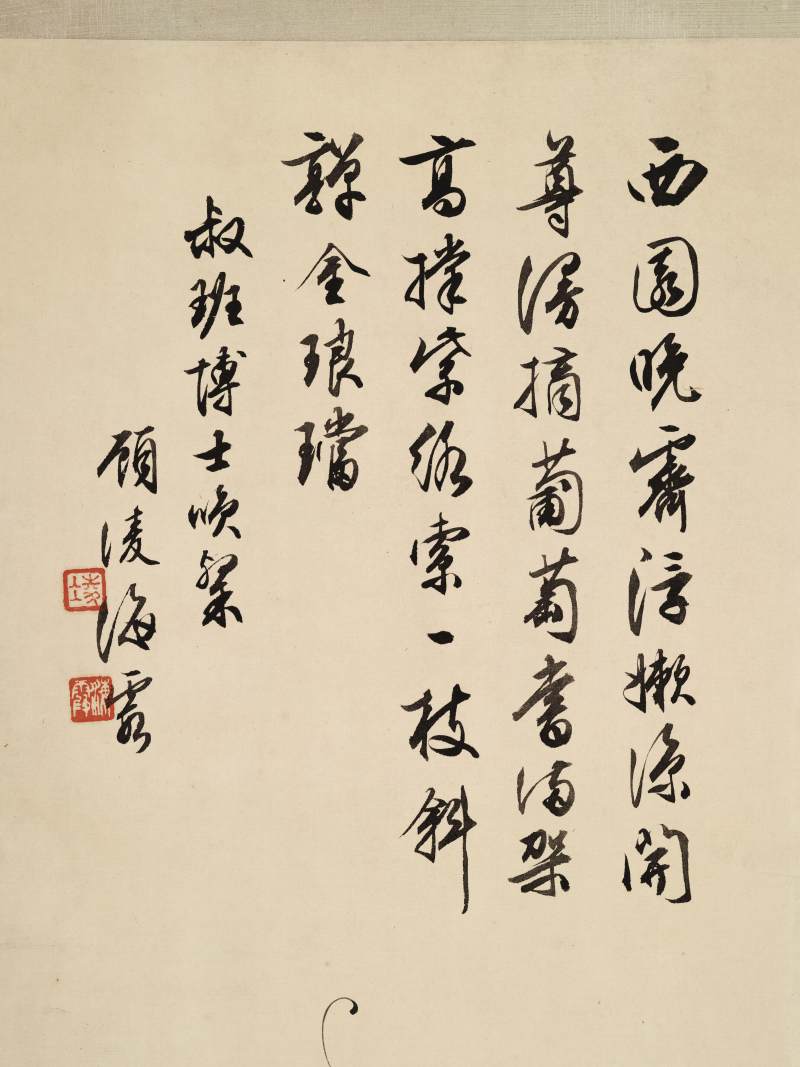 西園晚霽浮嫩涼開
尊漫摘葡萄嘗滿架
高撐紫絡索一枝斜
嚲金琅璫
叔班博士咲粲
顧淩海霞